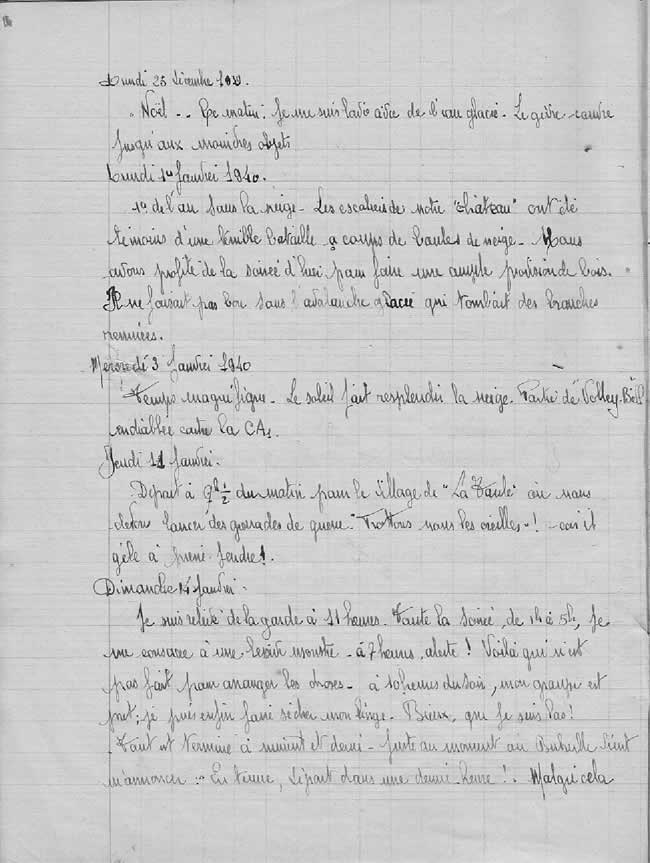 Lundi 25 Décembre 1939.
Noël - Ce matin, je me suis lavé avec de l'eau glacée. Le givre couvre
jusqu'aux moindres objets
Lundi 1er Janvier 1940.
1er de l'an sous la neige - Les escaliers de notre "château" ont été
témoins d'une terrible bataille à coups de boules de neige - Nous
avons profité de la soirée d'hier pour faire une ample provision de bois.
Il ne faisait pas bon sous l'avalanche glacée qui tombait des branches
remuées.
Mercredi 3 Janvier 1940
Temps magnifique - Le soleil fait resplendir la neige. Partie de Volley-Ball
endiablée contre la CA1.
Jeudi 11 Janvier.
Départ à 9h 1/2 du matin pour le village de "La" où nous
devons lancer des grenades de guerre. Frottons nous les oreilles ! - car il
gèle à pierre fendre !
Dimanche 14 Janvier.
Je suis relevé de la garde à 11 heures. Toute la soirée, de 1h à 5h, je
me consacre à une lessive monstre - à 7 heures, alerte ! Voilà qui n'est
pas fait pour arranger les choses - à 10 heures du soir, mon groupe est
prêt ; je puis enfin faire sécher mon linge. Dieux, que je suis las !
Tout est terminé à minuit et demi - juste au moment où vient
m'annoncer : En tenue, départ dans une demi-heure ! Malgré cela